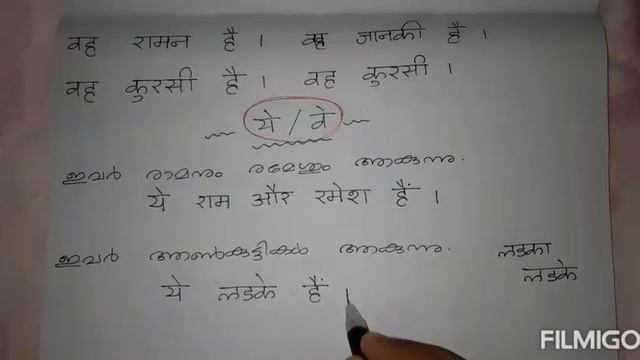 वह रामन है । वह जानकी है ।
वह कुरसी है । वह कुरसी ।
ये / वे
ഇവർ രാമനും രമേശും ആകുന്നു.
ये राम और रमेश हैं ।
ഇവർ ആൺകുട്ടികൾ ആകുന്നു. लडका
लडके
ये लडके हैं ।
FILMIGO